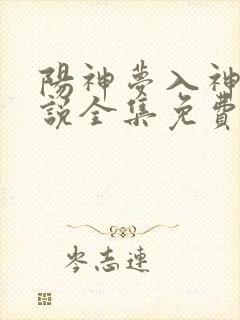 陽神夢入神
說全集免費
岑志連